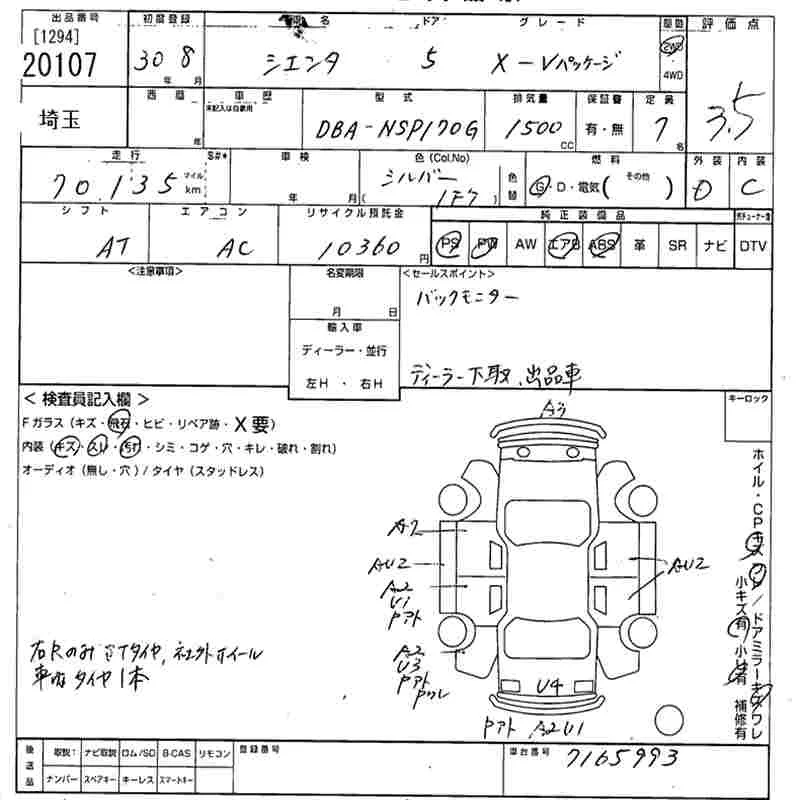 出品番号 初度登録 車名 ドア グレード 駆動 評価点
[1294]
20107 30 8 シエンタ 5 X-Vパッケージ 2WD
年 月 4WD
3.5
埼玉 西暦 年 車歴 未記入は自家用 型式 排気量 保証書 定員
DBA-NSP170G 1500 CC 有・無 7 名
走行 S#* 車検 色(Col.No) 色替 燃料 外装 内装
70,135 マイル km 年 月 シルバー ( 1F7 ) G・D・電気( その他 ) D C
シフト エアコン リサイクル預託金 純正装備品
AT AC 10360 円 PS PW AW エアB ABS 革 SR ナビ DTV
<注意事項> 名変期限 <セールスポイント>
月 日 バックモニター
輸入車
ディーラー・並行 ディーラー下取、出品車
左H・右H
< 検査員記入欄 > キーロック
Fガラス(キズ・飛石・ヒビ・リペア跡・X要)
内装(キズ・スレ・汚れ・シミ・コゲ・穴・キレ・破れ・割れ)
オーディオ(無し・穴)/タイヤ(スタッドレス)
A3
A2
AU2 AU2
A2
U1
Pアト
A2
U3
Pアト
Pワレ
U4
Pアト A2 U1
ホイル・CPキズ
/ドアミラーキズワレ
小キズ有 小凹有 補修有
車内タイヤ1本
後送品 取説 ナビ取説 ロム/SD B-CAS リモコン 登録番号 車台番号
ナンバー スペアキー キーレス スマートキー 7165993